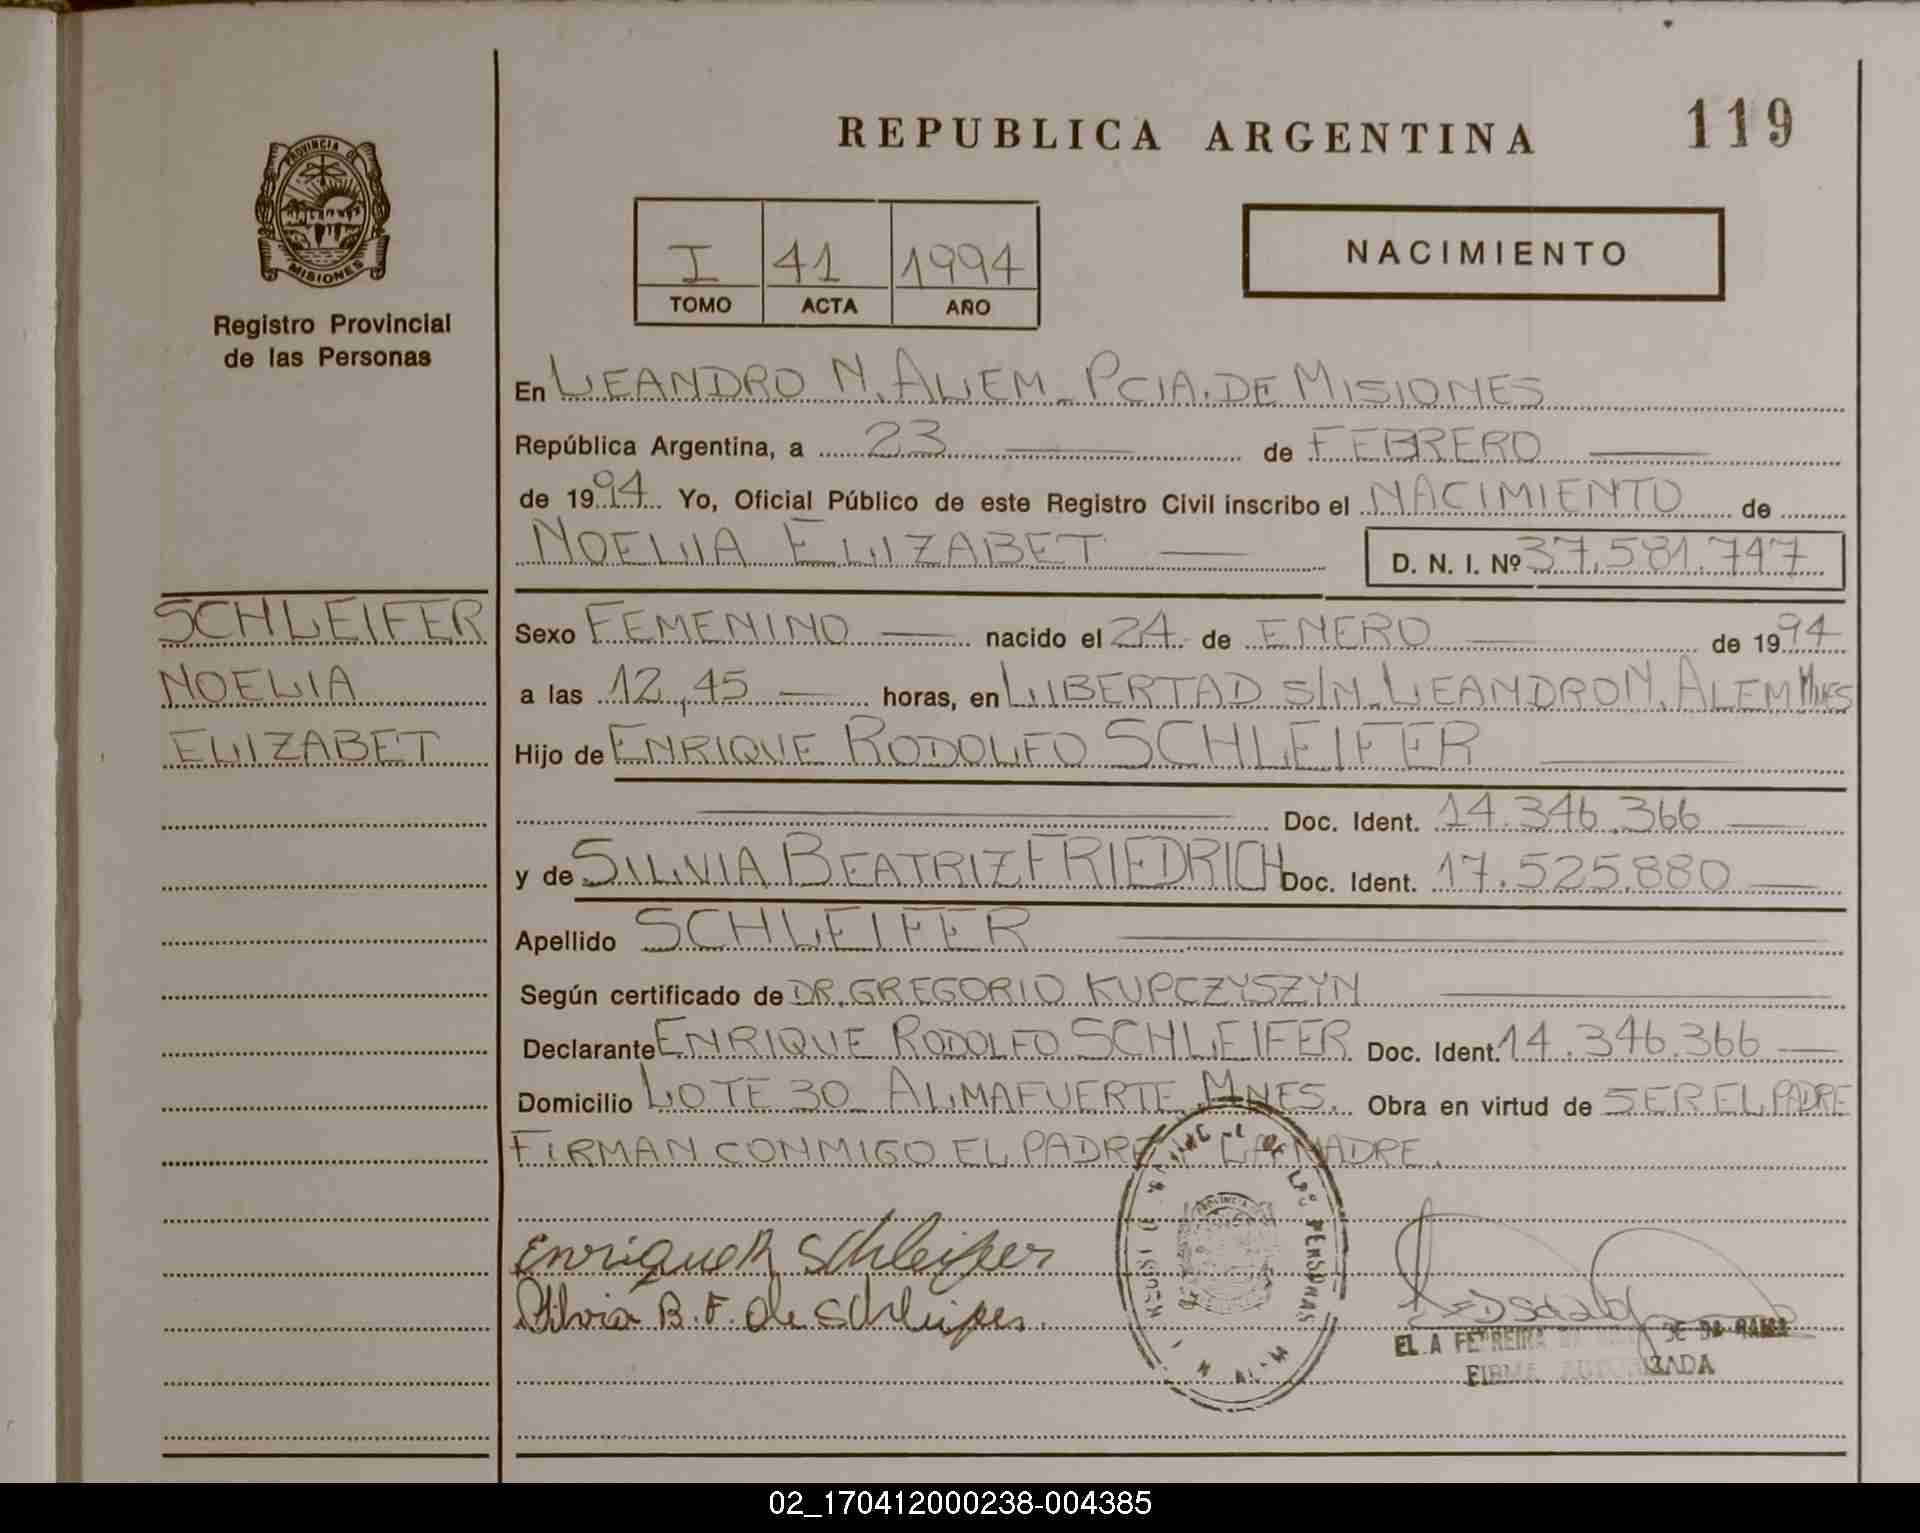 REPUBLICA ARGENTINA
119
PROVINCIA DE
MISIONES
Registro Provincial
de las Personas
I 41 1994
TOMO ACTA AÑO
NACIMIENTO
En LEANDRO N. ALEM - PCIA. DE MISIONES
República Argentina, a 23 de FEBRERO
de 1994 Yo, Oficial Público de este Registro Civil inscribo el NACIMIENTO de
NOELIA ELIZABET
D. N. I. Nº 37.581.747
SCHLEIFER
NOELIA
ELIZABET
Sexo FEMENINO nacido el 24 de ENERO de 1994
a las 12,45 horas, en LIBERTAD S/N. LEANDRO N. ALEM MNES
Hijo de ENRIQUE RODOLFO SCHLEIFER
Doc. Ident. 14.346.366
y de SILVIA BEATRIZ FRIEDRICH Doc. Ident. 17.525.880
Apellido SCHLEIFER
Según certificado de DR. GREGORIO KUPCZYSZYN
Declarante ENRIQUE RODOLFO SCHLEIFER Doc. Ident. 14.346.366
Domicilio LOTE 30 ALMAFUERTE MNES. Obra en virtud de SER EL PADRE
FIRMAN CONMIGO EL PADRE Y LA MADRE.
Enrique R Schleifer
Silvia B. F. de Schleifer.
PERSONAS
FERREIRA
DE DA
FIRMA AUTORIZADA
02_170412000238-004385